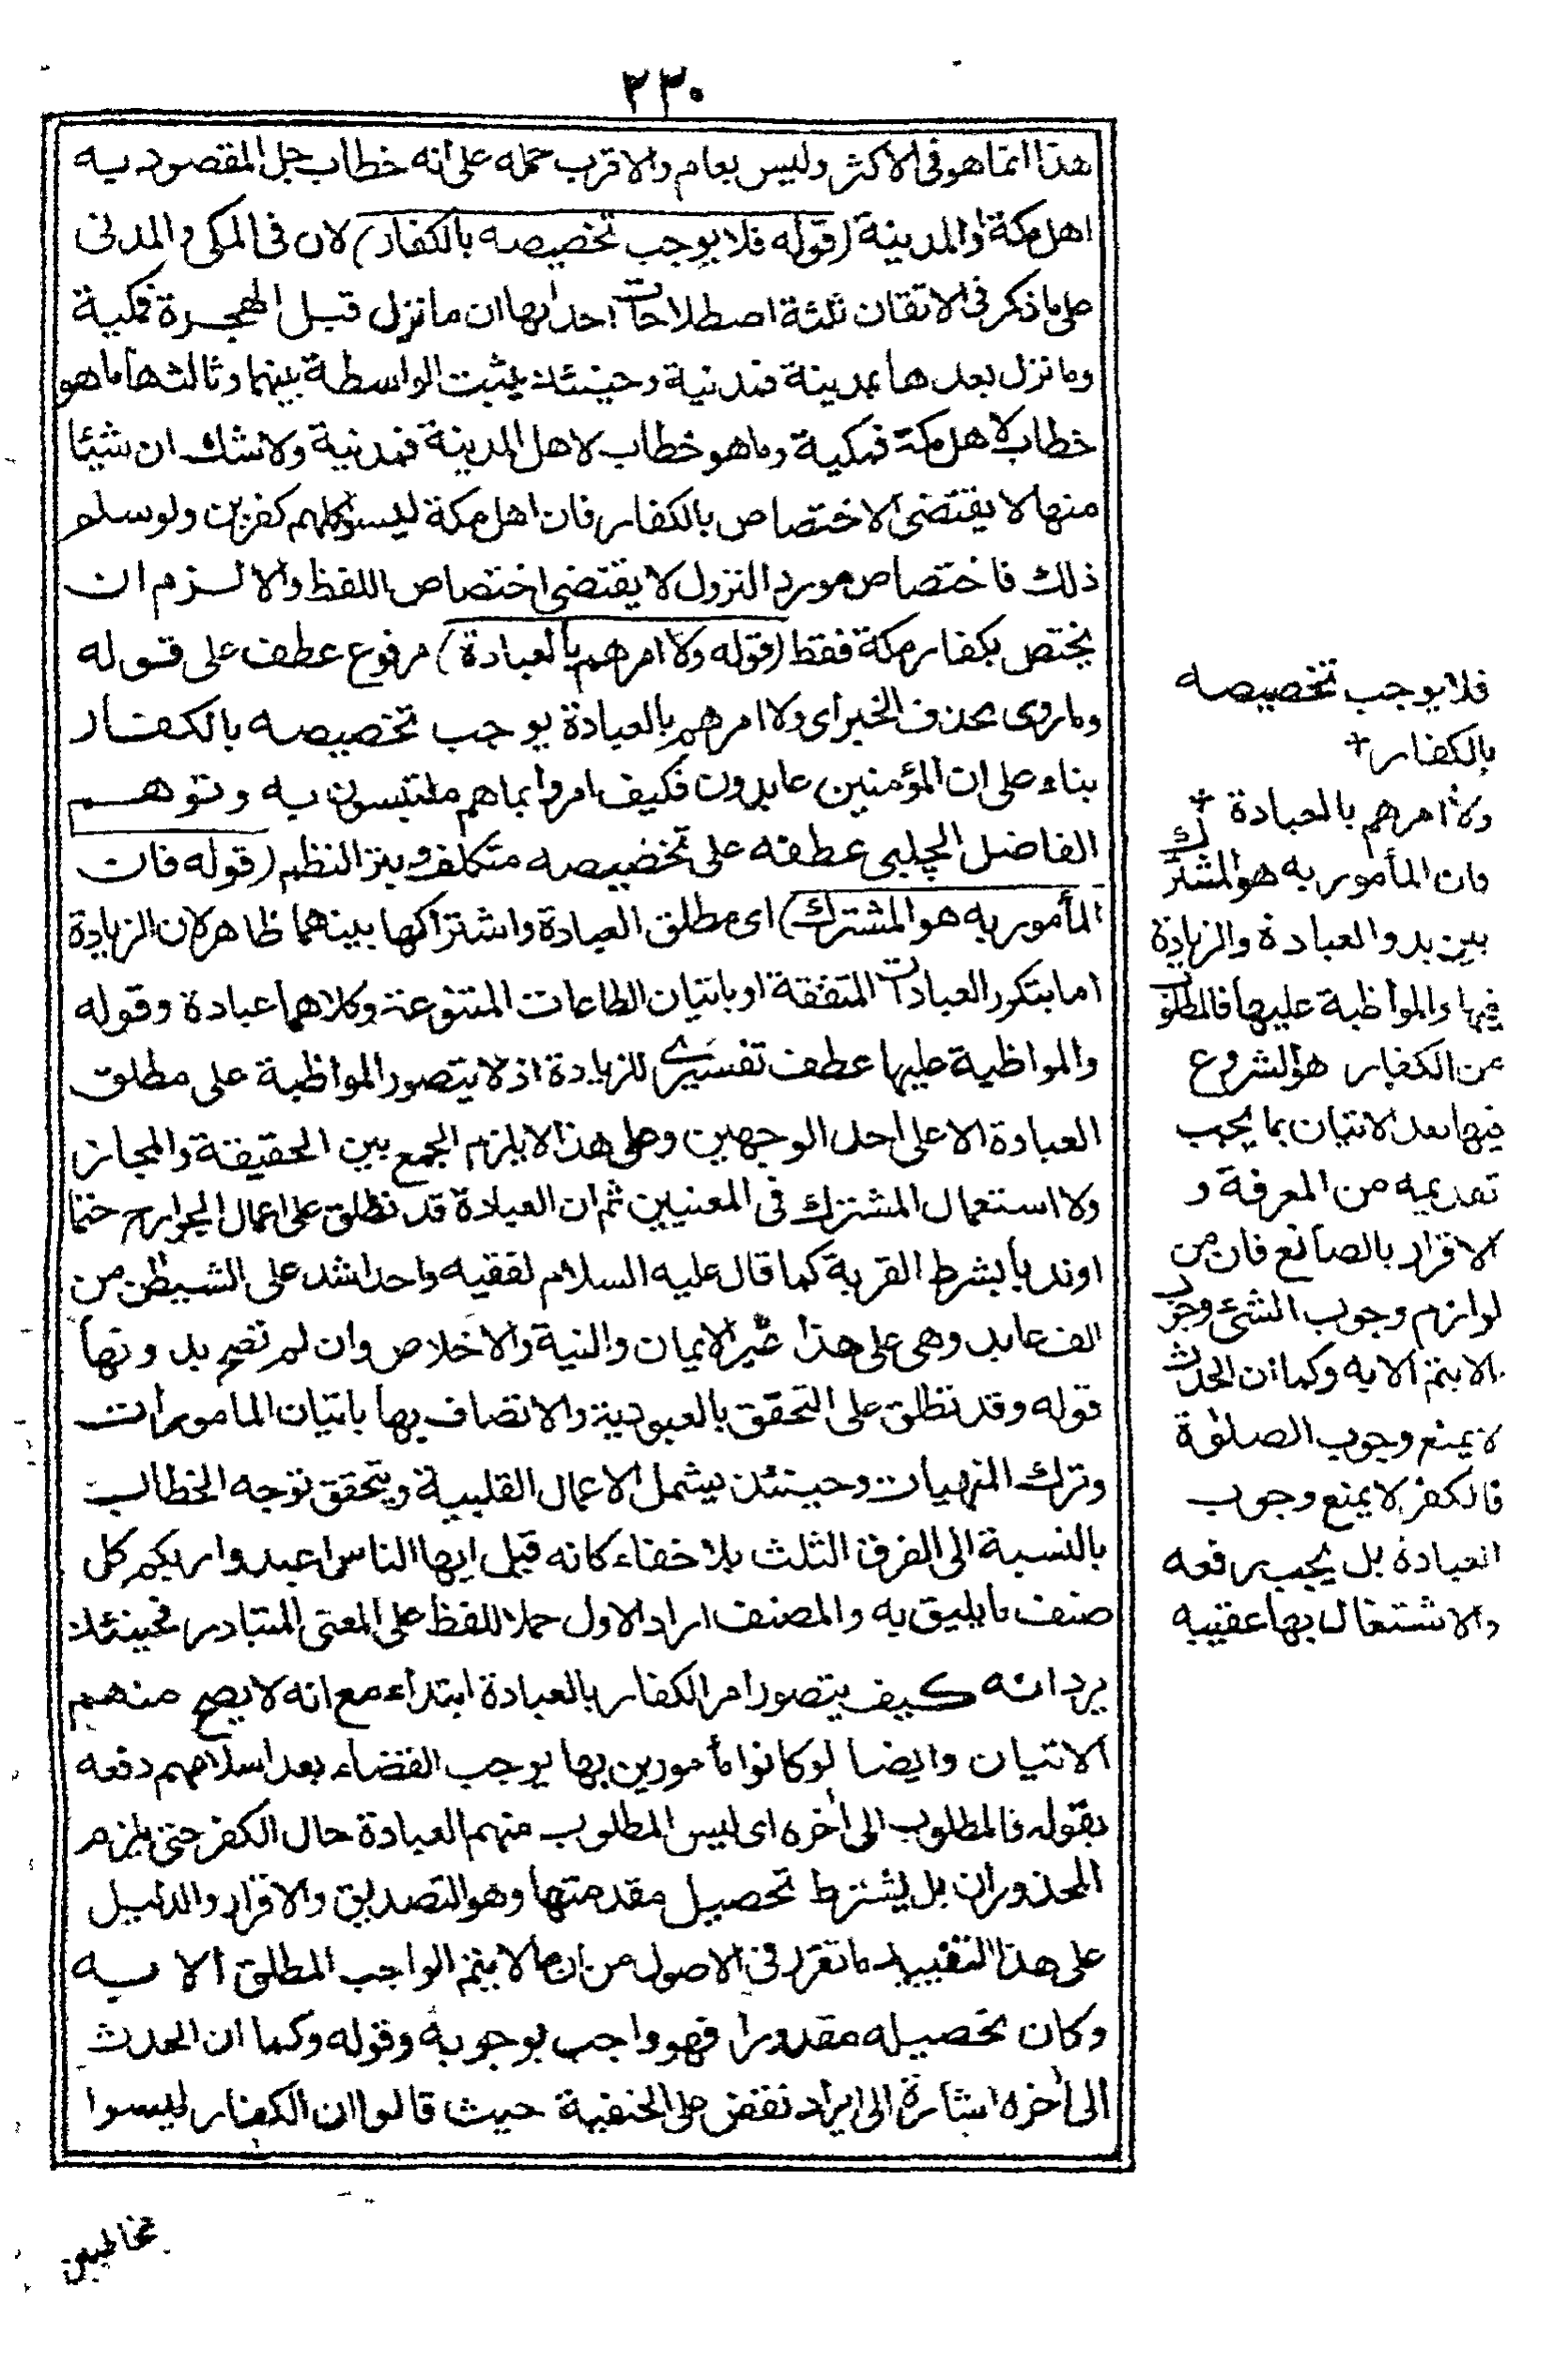 ٢٣٠
هذا انما هو فى الاكثر وليس بعام والاقرب حمله على انه خطاب جل المقصود به
اهل مكة او المدينة (قوله فلا يوجب تخصيصه بالكفار) لان فى المكى والمدنى
على ما ذكر فى الاتقان ثلثة اصطلاحات احدٰىها ان ما نزل قبل الهجرة فمكية
وما نزل بعدها بمدينة فمدنية وحينئذ يثبت الواسطة بينهما وثالثها ما هو
خطاب لاهل مكة فمكية وما هو خطاب لاهل المدينة فمدنية ولا شك ان شيئا
منها لا يقتضى الاختصاص بالكفار فان اهل مكة ليسوا كلهم كفرين ولو سلم
ذلك فاختصاص مورد النزول لا يقتضى اختصاص اللفظ والا لزم ان
يختص بكفار مكة فقط (قوله ولا امرهم بالعبادة) مرفوع عطف على قوله
وما روى بحذف الخبر اى ولا امرهم بالعبادة يوجب تخصيصه بالكفار
بناء على ان المؤمنين عابدون فكيف امروا بما هم ملتبسون به وتوهم
الفاضل الچلبى عطفه على تخصيصه متكلف ويبتر النظم (قوله فان
المأمور به هو المشترك) اى مطلق العبادة واشتراكها بينهما ظاهر لان الزيادة
اما بتكرر العبادات المتفقة او باتيان الطاعات المتنوعة وكلاهما عبادة وقوله
والمواظبة عليها عطف تفسيرى للزيادة اذ لا يتصور المواظبة على مطلق
العبادة الا على احد الوجهين وعلى هذا لا يلزم الجمع بين الحقيقة والمجاز
ولا استعمال المشترك فى المعنيين ثم ان العبادة قد تطلق على اعمال الجوارح حتما
او ندبا بشرط القربة كما قال عليه السلام لفقيه واحد اشد على الشيطٰن من
الف عابد وهى على هذا غير الايمان والنية والاخلاص وان لم تصح بدونها
قوله وقد تطلق على التحقق بالعبودية والاتصاف بها باتيان المامورات
وترك المنهيات وحينئذ يشمل الاعمال القلبية ويتحقق توجه الخطاب
بالنسبة الى الفرق الثلث بلا خفاء كانه قيل ايها الناس اعبدوا ربكم كل
صنف ما يليق به والمصنف اراد الاول حملا للفظ على المعنى المتبادر فحينئذ
يرد انه كيف يتصور امر الكفار بالعبادة ابتداء مع انه لا يصح منهم
الاتيان وايضا لو كانوا مأمورين بها يوجب القضاء بعد اسلامهم دفعه
بقوله فالمطلوب الى اٰخره اى ليس المطلوب منهم العبادة حال الكفر حتى يلزم
المحذوران بل يشترط تحصيل مقدمتها وهو التصديق والاقرار والدليل
على هذا التقييد ما تقرر فى الاصول من ان ما لا يتم الواجب المطلق الا به
وكان تحصيله مقدورا فهو واجب بوجوبه وقوله وكما ان الحدث
الى اٰخره اشارة الى ايراد نقض على الحنفية حيث قالوا ان الكفار ليسوا
فلا يوجب تخصيصه
بالكفار +
ولا امرهم بالعبادة +
فان المأمور به هو المشترك
بين بدو العبادة والزيادة
فيها والمواظبة عليها فالمطلوب
من الكفار هو الشروع
فيها بعد الاتيان بما يجب
تقديمه من المعرفة و
الاقرار بالصانع فان من
لوازم وجوب الشئ وجوب
ما لا يتم الا به وكما ان الحدث
لا يمنع وجوب الصلوٰة
فالكفر لا يمنع وجوب
العبادة بل يجب رفعه
والاشتغال بها عقيبه
مخاطبين